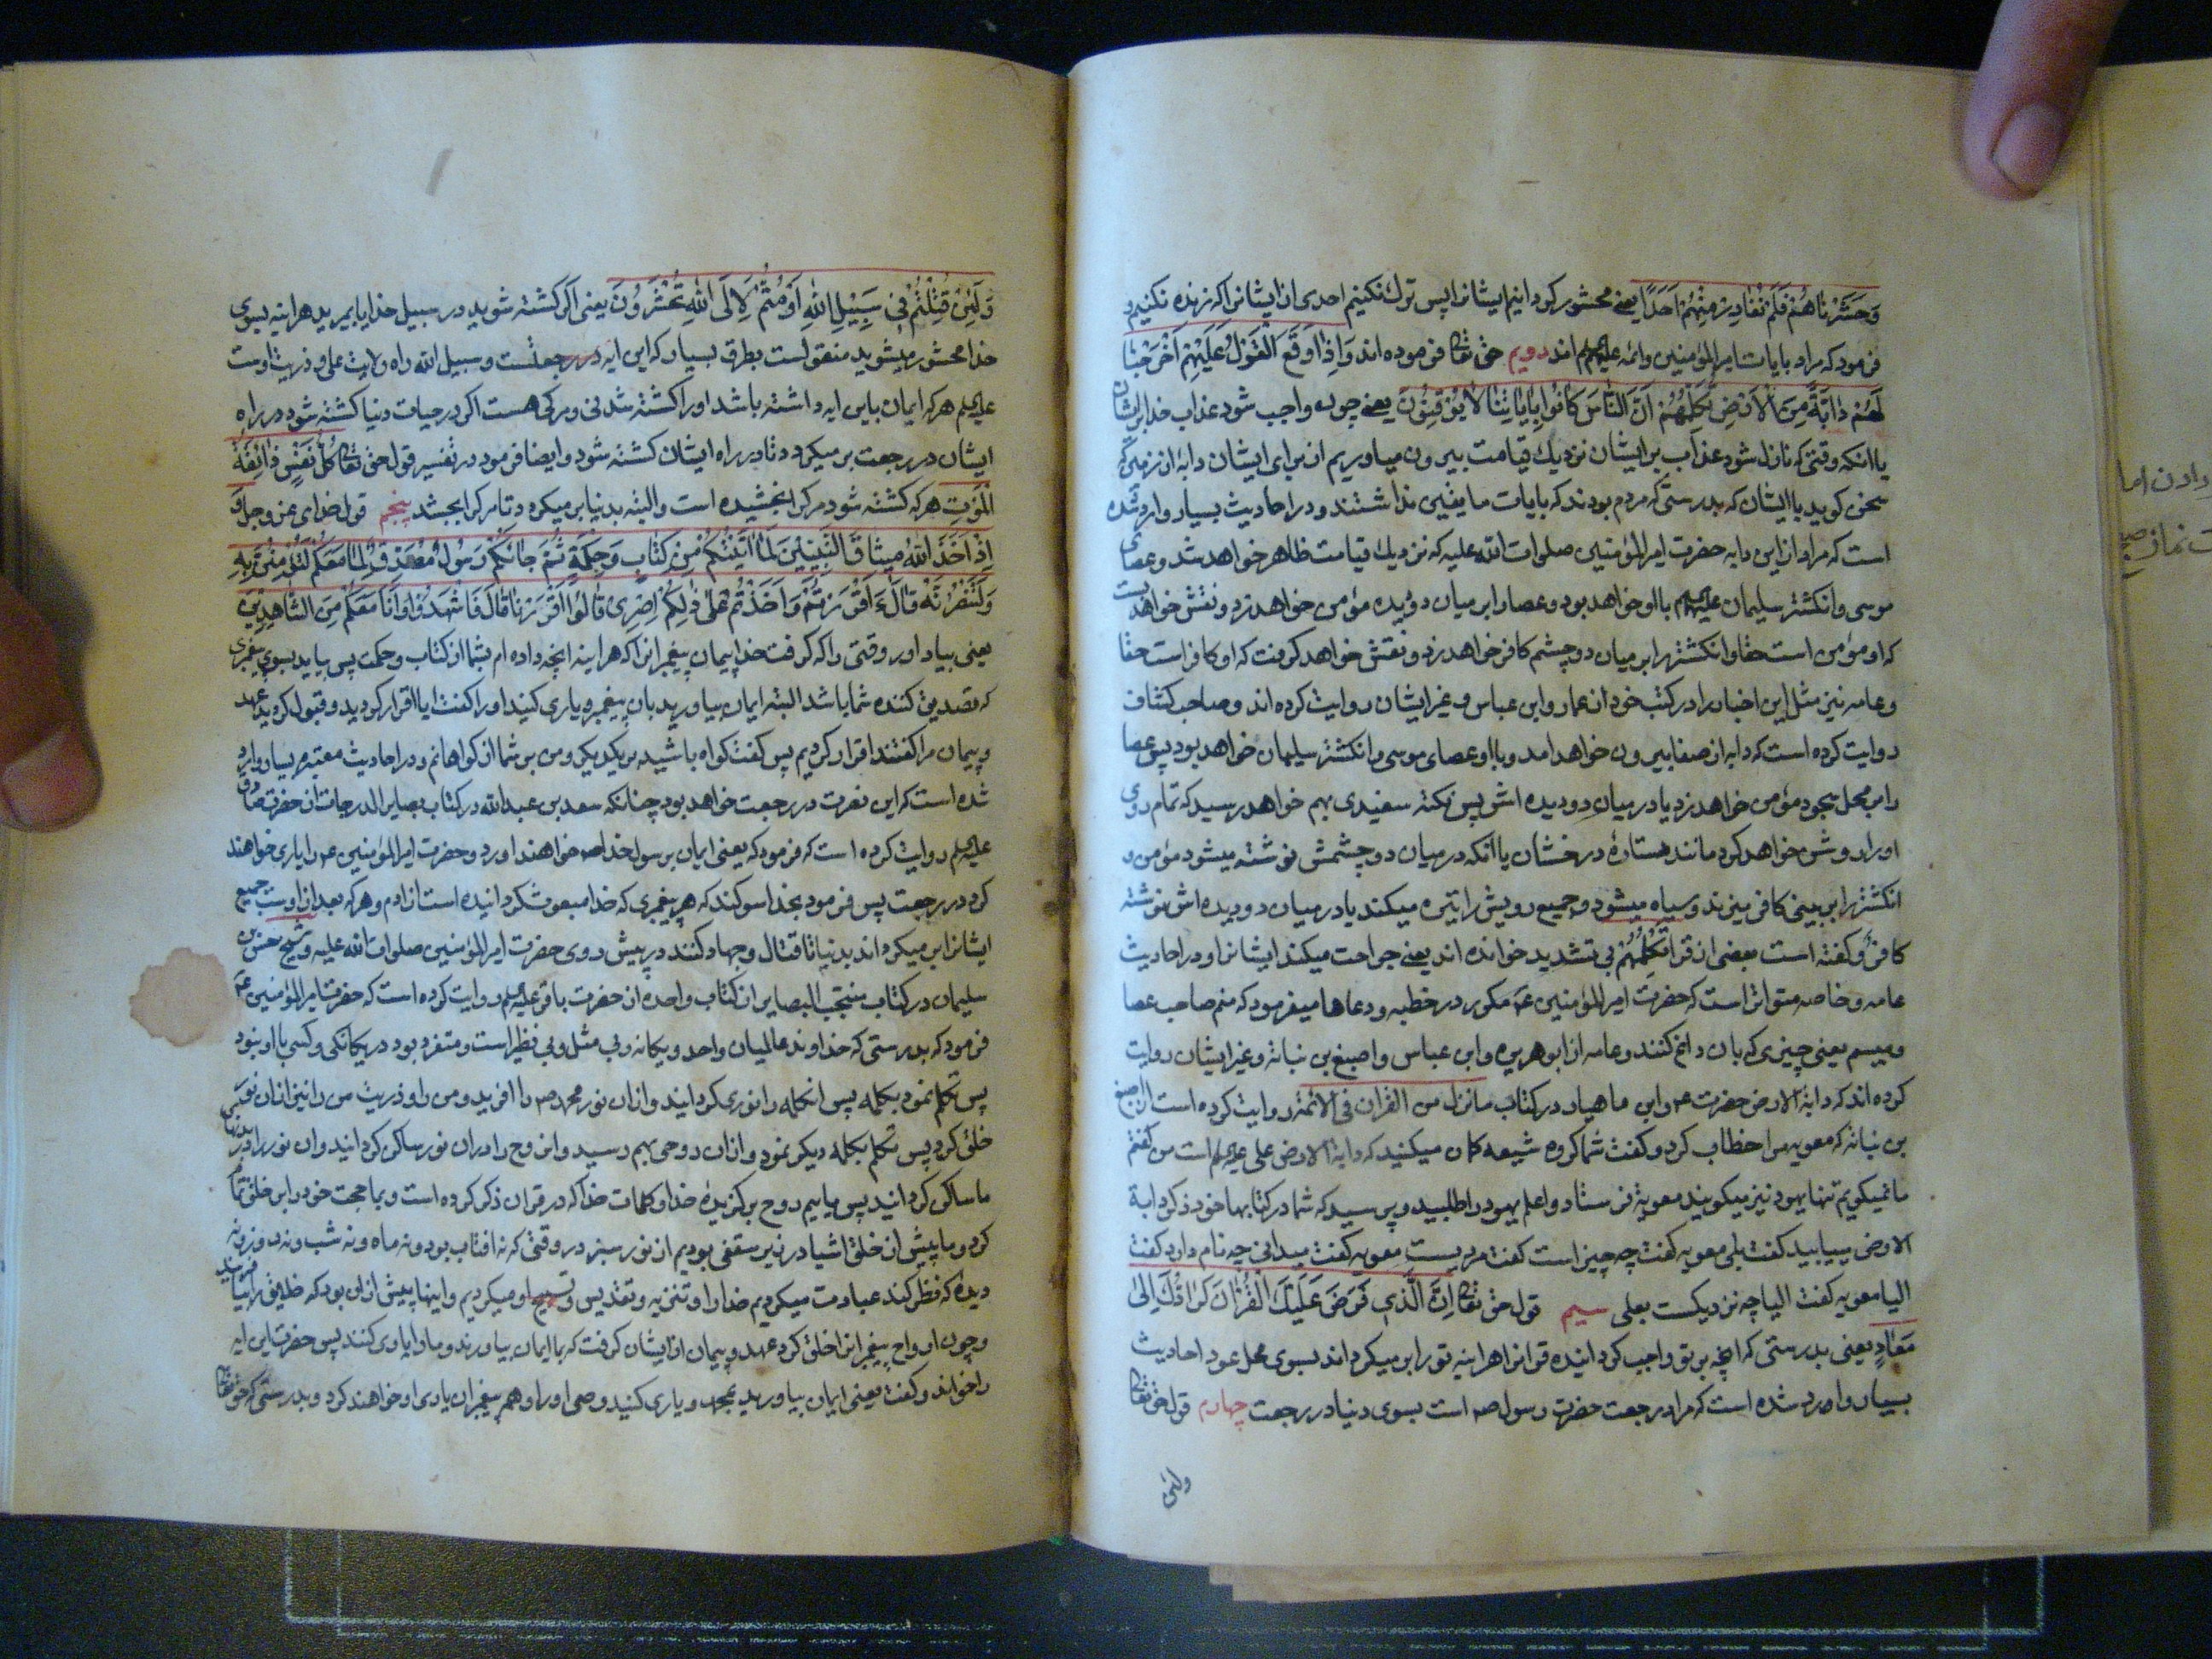 وَحَشَرْنَاهُمْ فَلَمْ نُغَادِرْ مِنْهُمْ اَحَدًا یعنے محشور کردانیم ایشانرا پس ترك نکنیم احدی از ایشانرا که زنده نکنیم و
فرمود که مراد بایات امیرالمؤمنین وائمه علیهم اند دویم حق تعالی فرموده اند وَاِذَا وَقَعَ الْقَوْلُ عَلَیْهِمْ اَخْرَجْنَا
لَهُمْ دَابَّةً مِنَ الْاَرْضِ تُکَلِّمُهُمْ اَنَّ النَّاسَ کَانُوا بِایَاتِنَا لَا یُوْقِنُوْنَ یعنے چون واجب شود عذاب خدا برایشان
یا انکه وقتی که نازل شود عذاب بر ایشان نزدیك قیامت بیرون میاوریم از برای ایشان دابهٔ از زمین که
سخن کوید با ایشان که بدرستی که مردم بودند که بایات ما یقین نداشتند و در احادیث بسیار وارد شده
است که مراد از این دابه حضرت امیرالمؤمنین صلوات الله علیه که نزدیك قیامت ظاهر خواهد شد و عصای
موسی وانکشتر سلیمان علیهم با او خواهد بود و عصا را بر میان دو دیده مؤمن خواهد زد و نقش خواهد بست
که او مؤمن است حقا وانکشتر را بر میان دو چشم کافر خواهد زد و نقش خواهد کرفت که او کافر است حقا
وعامه نیز مثل این اخبار را در کتب خود از عمار وابن عباس و غیر ایشان روایت کرده اند و صاحب کشاف
روایت کرده است که دابه از صفا بیرون خواهد امد وبا او عصای موسی وانکشتر سلیمان خواهد بود پس عصا
را بر محل سجود مؤمن خواهد زد یا در میان دو دیده اش پس نکته سفیدی بهم خواهد رسید که تمام روی
او را روشن خواهد کرد مانند ستارهٔ درخشان یا انکه در میان دو چشمش نوشته میشود مؤمن و
انکشتر را بر بینی کافر میزند و سیاه میشود وجمیع رویش را تیره میکند یا در میان دو دیده اش نوشته
کافر و کفته است بعضی از قرا تَکْلِمُهُمْ بی تشدید خوانده اند یعنے جراحت میکند ایشانرا و در احادیث
عامه وخاصه متواتر است که حضرت امیرالمؤمنین ع مکرر در خطبه ودعاها میفرمود که منم صاحب عصا
ومیسم یعنی چیزی که بان داغ کنند وعامه از ابوهریره وابن عباس واصبغ بن نباته وغیر ایشان روایت
کرده اند که دابة الارض حضرت ع وابن ماهیار در کتاب مانزل من القران فی الائمه روایت کرده است از اصبغ
بن نباته که معویه مرا خطاب کرد و کفت شما کروه شیعه کمان میکنید که دابة الارض علی علیه است من کفتم
ما نمیکویم تنها یهود نیز میکویند معویه فرستاد واعلم یهود را طلبید وپرسید که شما در کتابها خود ذکر دابة
الارض مییابید کفت بلی معویه کفت چه چیز است کفت مردیست معویه کفت میدانی چه نام دارد کفت
الیا معویه کفت الیا چه نزدیکست بعلی سیم قول حق تعالی اِنَّ الَّذِی فَرَضَ عَلَیْكَ الْقُرْاٰنَ لَرَادُّكَ اِلٰی
مَعَادٍ یعنی بدرستی که انچه بر تو واجب کردانیده قرانرا هراینه تو را بر میکرداند بسوی محل عود احادیث
بسیار وارد شده است که مراد رجعت حضرت رسول ص است بسوی دنیا در رجعت چهارم قول حق تعالی
ولئن
وَلَئِنْ قُتِلْتُمْ فِی سَبِیْلِ اللهِ اَوْ مُتُّمْ لَاِلَی اللهِ تُحْشَرُوْنَ یعنی اکر کشته شوید در سبیل خدا یا بمیرید هراینه بسوی
خدا محشور میشوید منقولست بطرق بسیار که این ایه در رجعتست و سبیل الله راه ولایت علی و ذریت اوست
علیهم هر که ایمان باین ایه داشته باشد او را کشته شدنی و مرکی هست اکر در حیات دنیا کشته شود در راه
ایشان در رجعت بر میکردد تا در راه ایشان کشته شود وایضا فرمود در تفسیر قول حق تعالی کُلُّ نَفْسٍ ذَائِقَةُ
الْمَوْتِ هر که کشته شود مرك را نچشیده است والبته بدنیا بر میکردد تا مرك را بچشد پنجم قول خدای عز وجل وَ
اِذْ اَخَذَ اللهُ مِیثَاقَ النَّبِیِّیْنَ لَمَا اٰتَیْتُکُمْ مِنْ کِتَابٍ وَحِکْمَةٍ ثُمَّ جَائَکُمْ رَسُولٌ مُصَدِّقٌ لِمَا مَعَکُمْ لَتُؤْمِنُنَّ بِهِ
وَلَتَنْصُرُنَّهُ قَالَ ءَاَقْرَرْتُمْ وَاَخَذْتُمْ عَلٰی ذٰلِکُمْ اِصْرِی قَالُوا اَقْرَرْنَا قَالَ فَاشْهَدُوا وَاَنَا مَعَکُمْ مِنَ الشَّاهِدِیْنَ
یعنی بیاد اور وقتی را که کرفت خدا پیمان پیغمبرانرا که هراینه انچه داده ام بشما از کتاب وحکمت پس بیاید بسوی پیغمبری
که تصدیق کننده شما باشد البته ایمان بیاورید بان پیغمبر ویاری کنید او را کفت ایا اقرار کردید و قبول کردید عهد
وپیمان مرا کفتند اقرار کردیم پس کفت کواه باشید بر یکدیکر ومن بر شما از کواهانم و در احادیث معتبره بسیار وارد
شده است که این نصرت در رجعت خواهد بود چنانکه سعد بن عبدالله در کتاب بصایر الدرجات از حضرت صادق
علیهم روایت کرده است که فرمود که یعنی ایمان برسول خدا ص خواهند اورد وحضرت امیرالمؤمنین ع را یاری خواهند
کرد در رجعت پس فرمود بخدا سوکند که هر پیغمبری که خدا مبعوث کردانیده است از ادم و هر که بعد از اوست جمیع
ایشانرا بر میکرداند بدنیا تا قتال وجهاد کنند در پیش روی حضرت امیرالمؤمنین صلوات الله علیه وشیخ حسن بن
سلیمان در کتاب منتخب البصایر از کتاب واحده از حضرت باقر علیهم روایت کرده است که حضرت امیرالمؤمنین ع
فرمود که بدرستی که خداوند عالمیان واحد ویکانه وبی مثل وبی نظیر است ومتفرد بود در یکانکی وکسی با او نبود
پس تکلم نمود بکلمه پس انکلمه را نوری کردانید وازان نور محمد ص را افرید ومن را وذریت من را نیز ازان نور
خلق کرد پس تکلم بکلمه دیکر نمود وازان روحی بهم رسید وانروح را دران نور ساکن کردانید وان نور را در بدنهای
ما ساکن کردانید پس ماییم روح برکزیدهٔ خدا وکلمات خدا که در قران ذکر کرده است وبما حجت خود را بر خلق تمام
کرد وما پیش از خلق اشیا در زیر سقفی بودیم از نور سبز در وقتی که نه افتاب بود ونه ماه ونه شب ونه روز ونه
دیدهٔ که نظر کند عبادت میکردیم خدا را وتنزیه وتقدیس وتسبیح او میکردیم واینها پیش ازان بود که خلایق را بیافریند
وچون ارواح پیغمبرانرا خلق کرد عهد وپیمان از ایشان کرفت که بما ایمان بیاورند وما را یاری کنند پس حضرت این ایه
را خواند وکفت یعنی ایمان بیاورید بمحمد ویاری کنید وصی او را وهمه پیغمبران یاری او خواهند کرد وبدرستی که حق تعالی